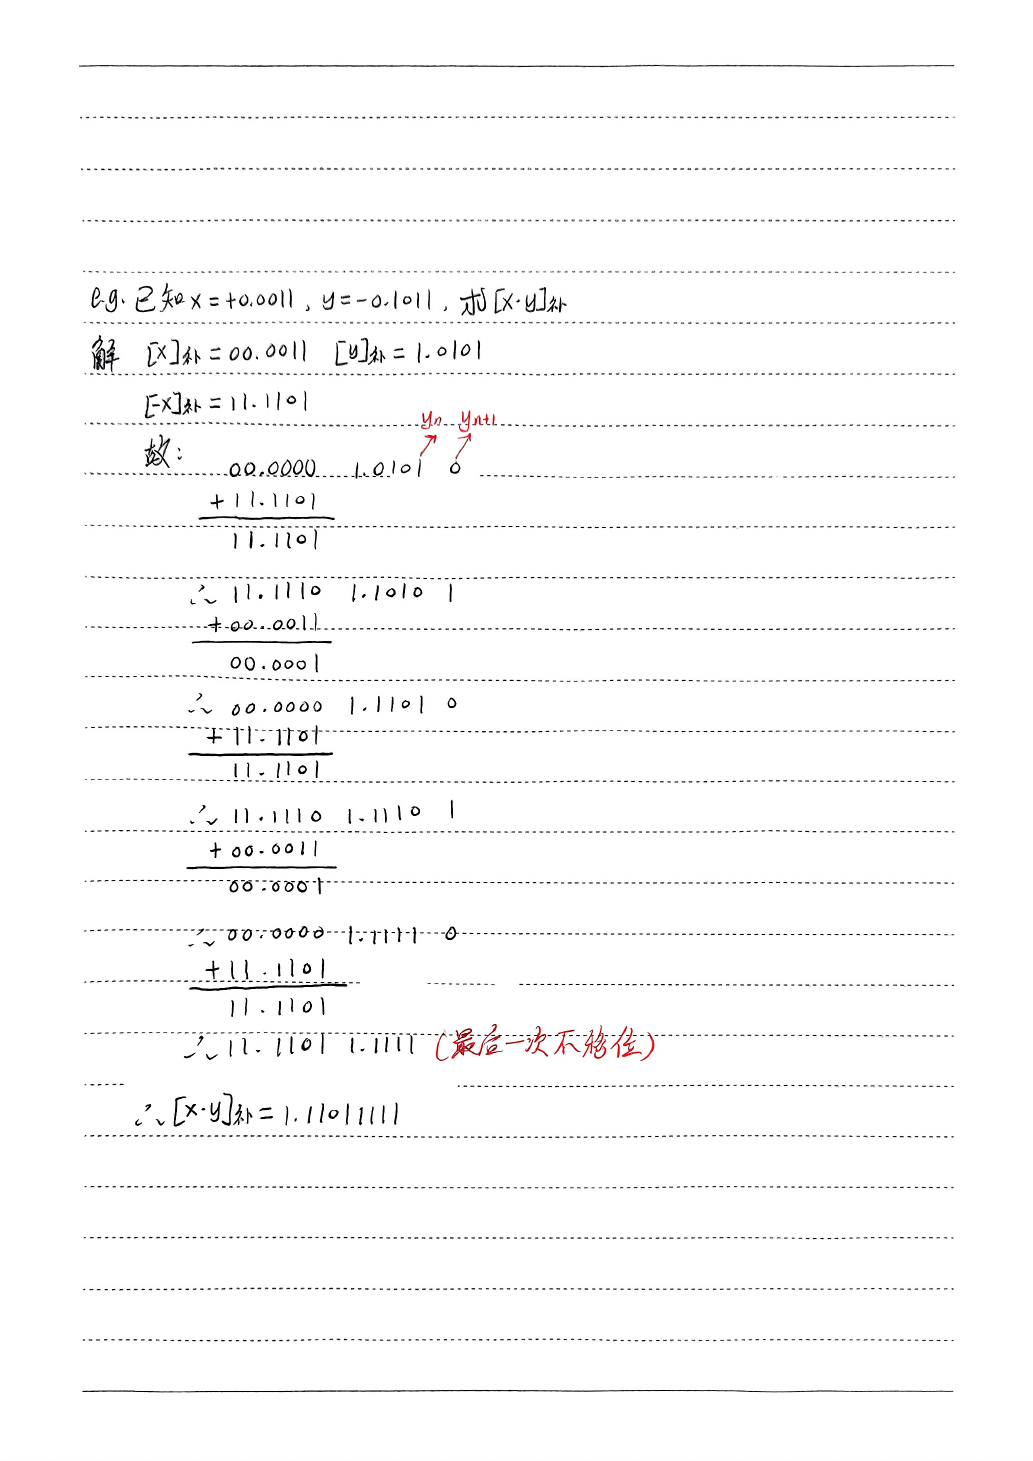 e.g. 已知 x=+0.0011, y=-0.1011, 求[x·y]补
解 [x]补=00.0011 [y]补=1.0101
[-x]补=11.1101
yn yn+1
故:
00.0000 1.0101 0
+11.1101
11.1101
∴ 11.1110 1.1010 1
+00.0011
00.0001
∴ 00.0000 1.1101 0
+11.1101
11.1101
∴ 11.1110 1.1110 1
+00.0011
00.0001
∴ 00.0000 1.1111 0
+11.1101
11.1101
∴ 11.1101 1.1111 (最后一次不移位)
∴ [x·y]补=1.11011111